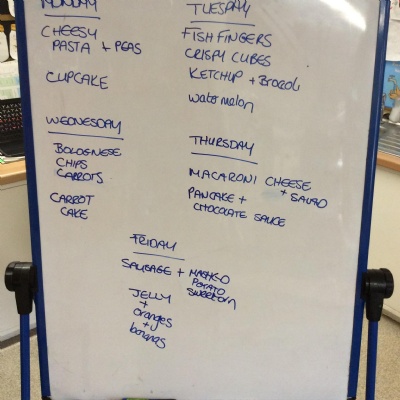 MONDAY
CHEESY
PASTA + PEAS
CUPCAKE
TUESDAY
FISH FINGERS
CRISPY CUBES
KETCHUP + BROCOLI
watermelon
WEDNESDAY
BOLOGNESE
CHIPS
CARROTS
CARROT
CAKE
THURSDAY
MACARONI CHEESE
+ SALAD
PANCAKE +
CHOCOLATE SAUCE
FRIDAY
SAUSAGE + MASHED
POTATO
sweetcorn
JELLY
+
oranges
+
bananas